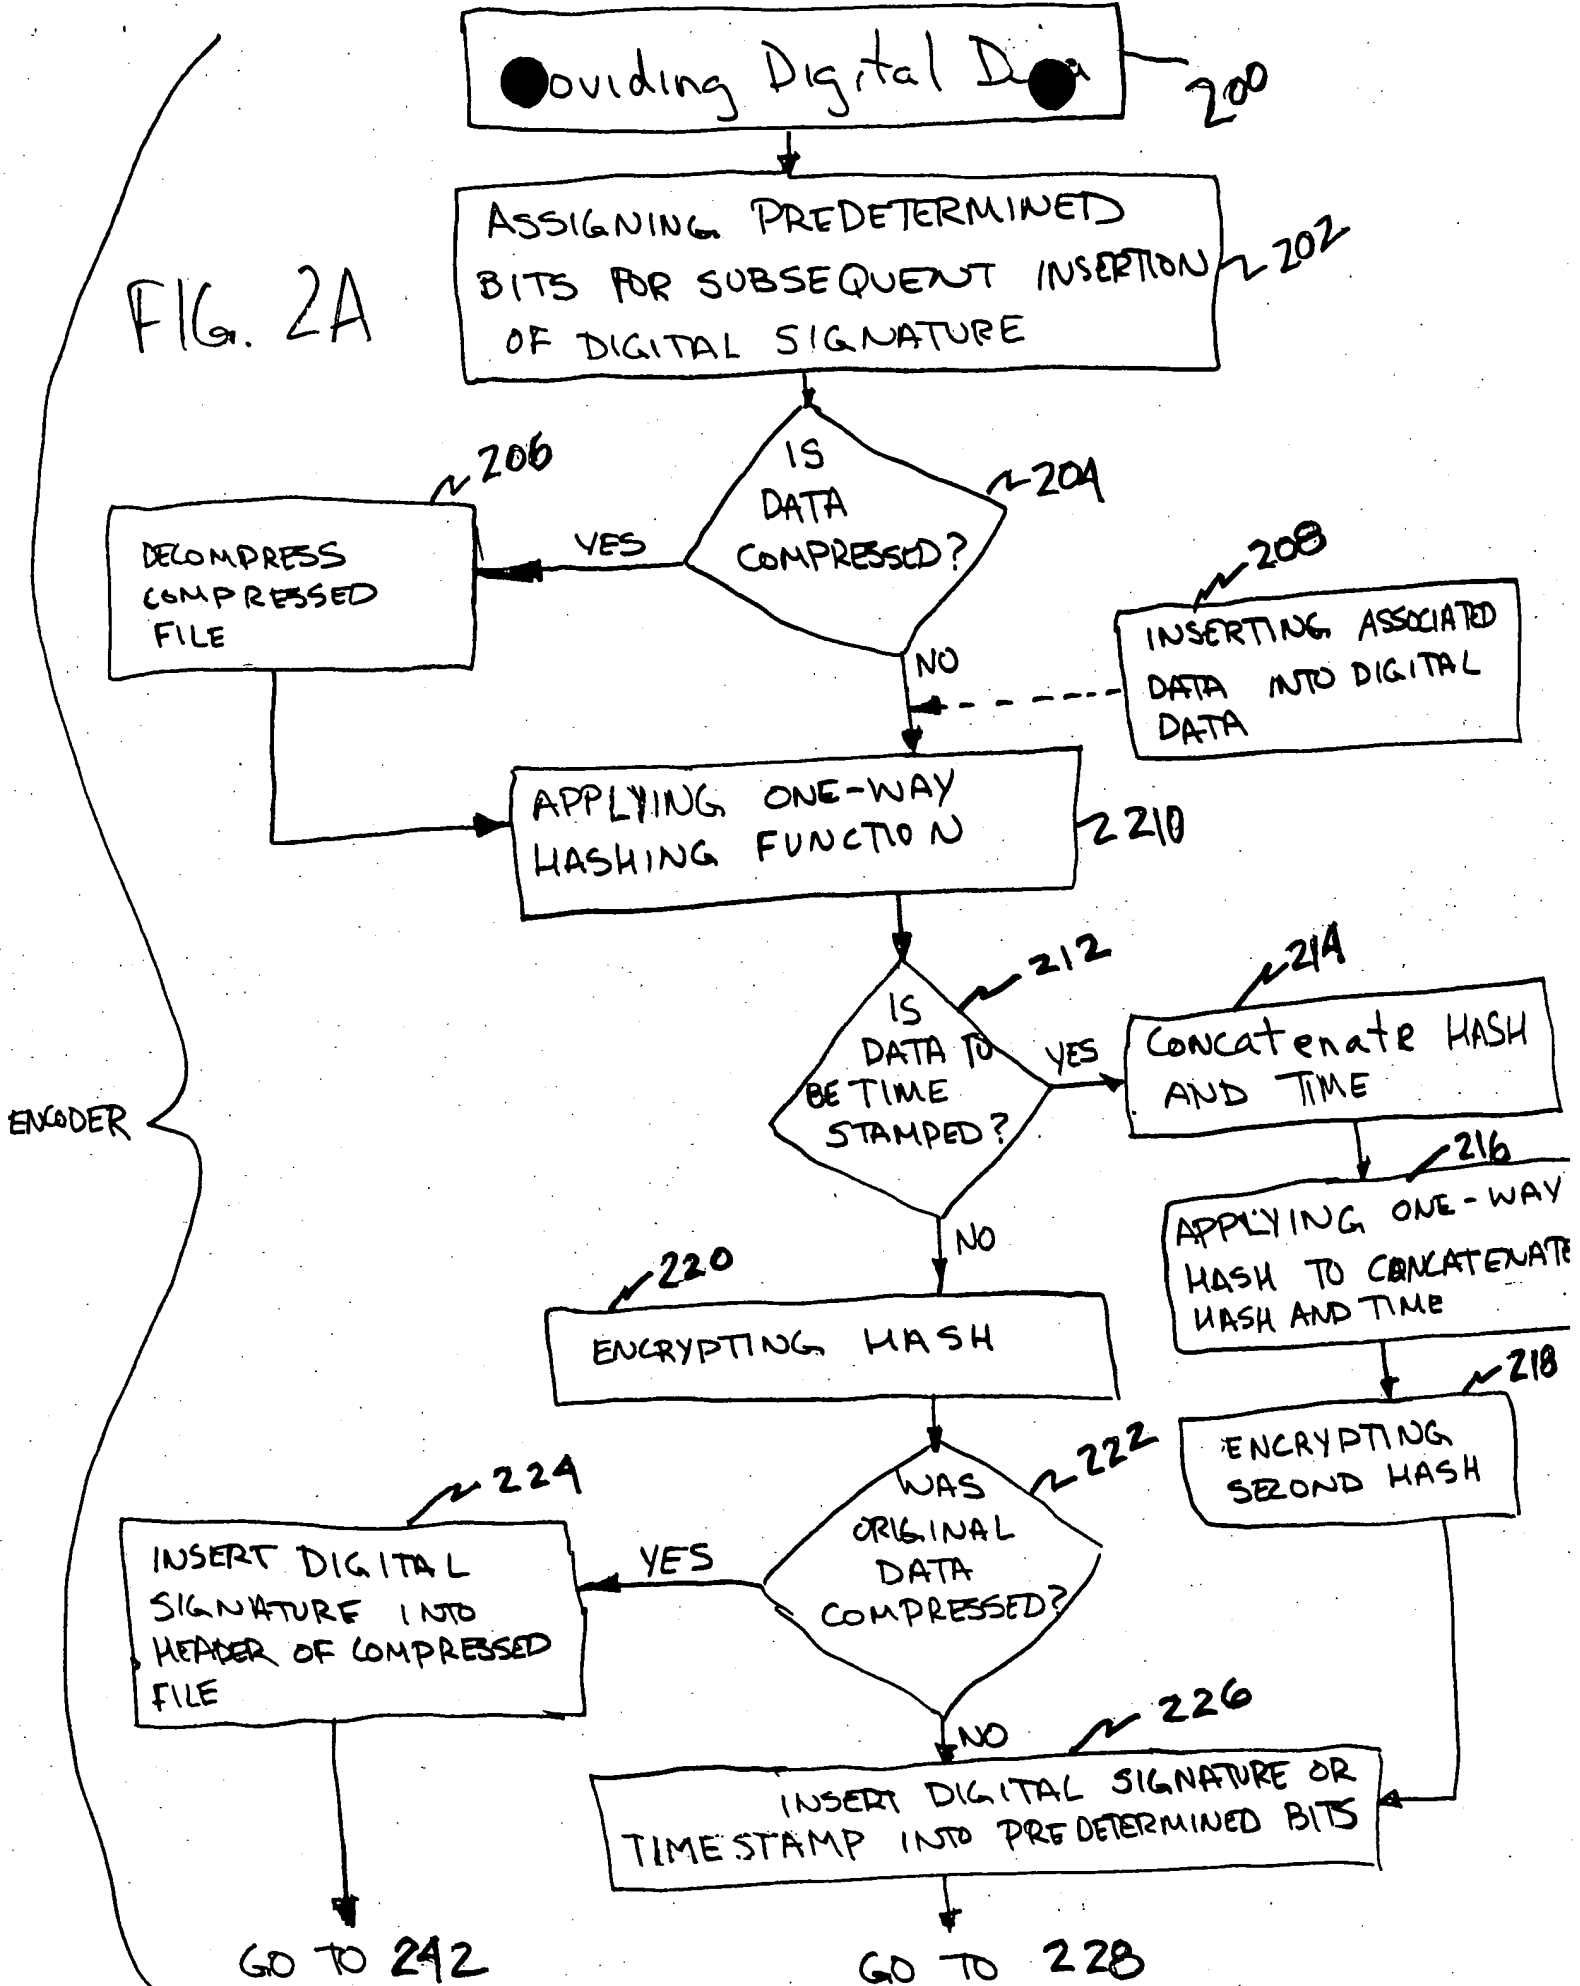 Providing Digital Data
200
ASSIGNING PREDETERMINED
BITS FOR SUBSEQUENT INSERTION
OF DIGITAL SIGNATURE
202
FIG. 2A
IS
DATA
COMPRESSED?
204
206
YES
DECOMPRESS
COMPRESSED
FILE
208
INSERTING ASSOCIATED
DATA INTO DIGITAL
DATA
NO
APPLYING ONE-WAY
HASHING FUNCTION
210
212
IS
DATA TO
BE TIME
STAMPED?
YES
214
CONCatenate HASH
AND TIME
ENCODER
216
APPLYING ONE-WAY
HASH TO CONCATENATE
HASH AND TIME
NO
220
ENCRYPTING HASH
218
ENCRYPTING
SECOND HASH
222
WAS
ORIGINAL
DATA
COMPRESSED?
224
YES
INSERT DIGITAL
SIGNATURE INTO
HEADER OF COMPRESSED
FILE
NO
226
INSERT DIGITAL SIGNATURE OR
TIME STAMP INTO PREDETERMINED BITS
GO TO 242
GO TO 228